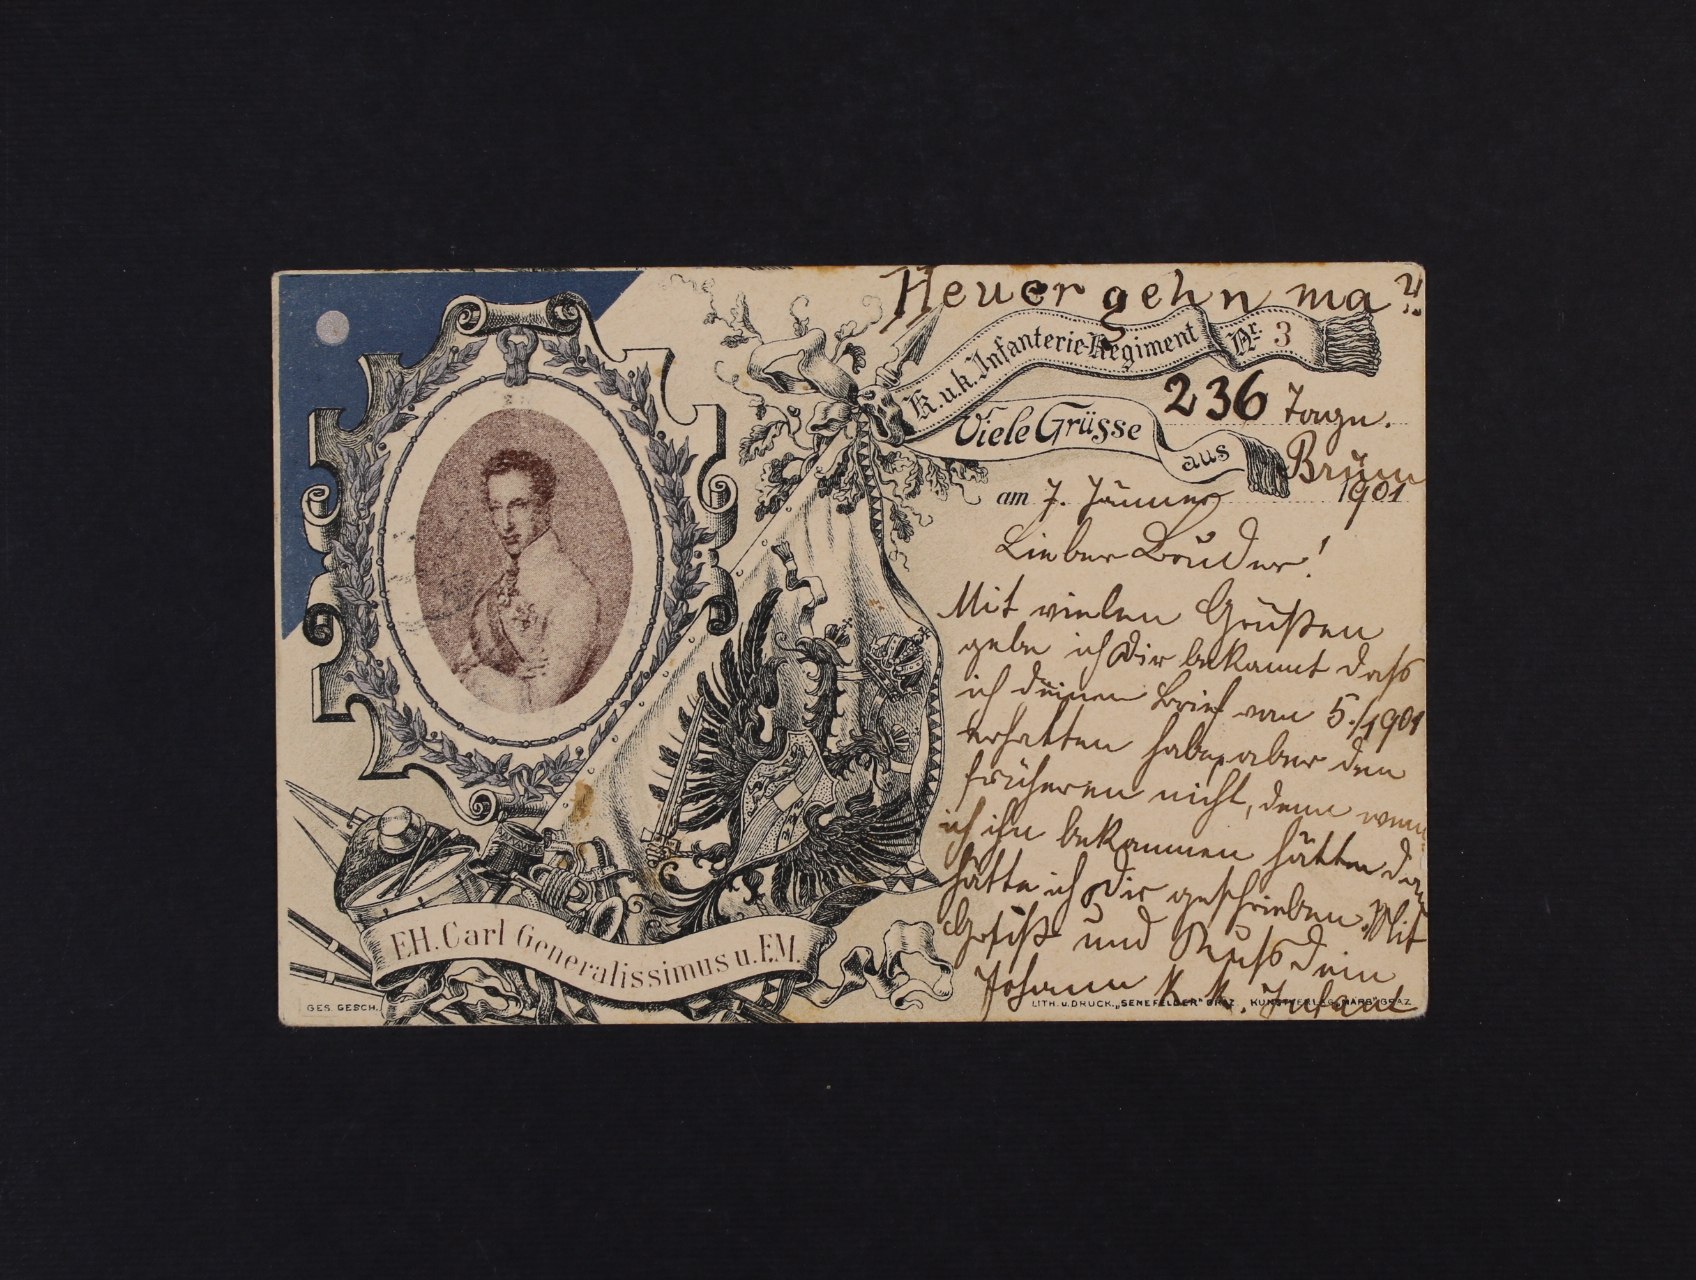 Heuer gehn ma?!
K.u.k. Infanterie-Regiment Nr. 3
236 Tage.
Viele Grüsse aus Brünn
am 7. Jänner 1901
Lieber Bruder!
Mit vielen Grüßen
gebe ich Dir bekannt dass
ich deinen Brief vom 5./1901
erhalten habe, aber den
früheren nicht, denn wenn
ich ihn bekommen hätte
hätte ich Dir geschrieben. Mit
Gruß und Kuss dein
Johann K. K. Infant
E.H. Carl Generalissimus u. F.M.
GES. GESCH.
LITH. u. DRUCK. „SENEFELDER" GRAZ. KUNSTVERLAG GRAZ